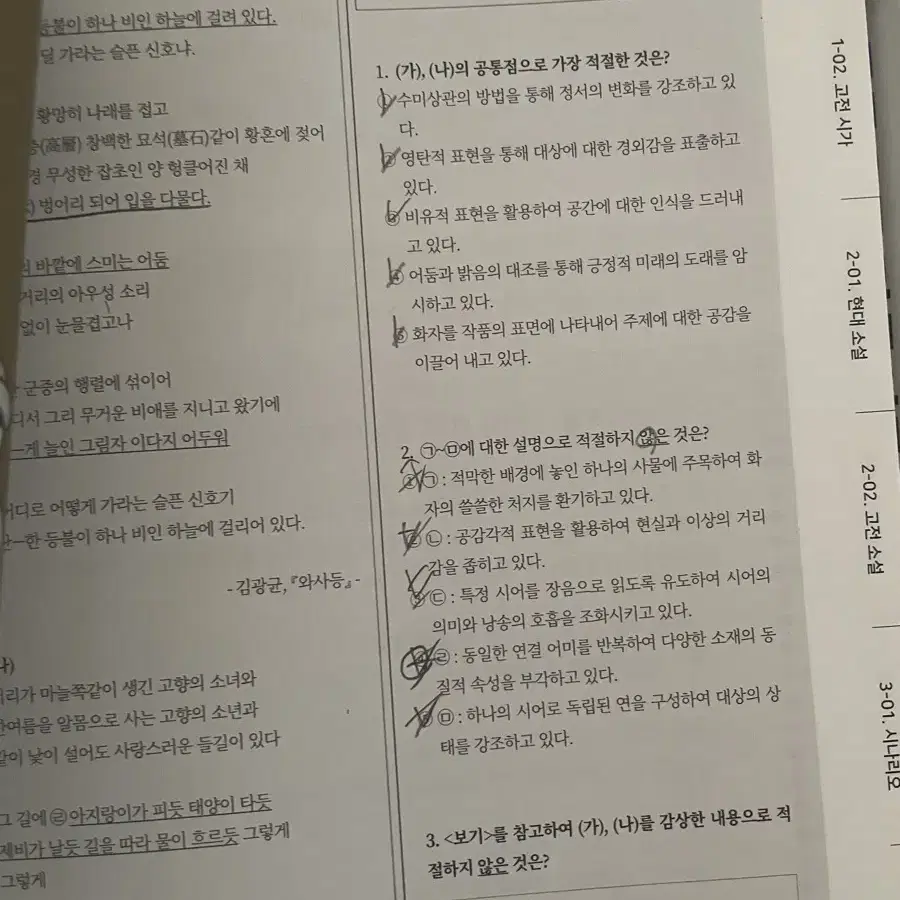 등불이 하나 비인 하늘에 걸려 있다.
딜 가라는 슬픈 신호냐.
황망히 나래를 접고
층(高層) 창백한 묘석(墓石)같이 황혼에 젖어
경 무성한 잡초인 양 헝클어진 채
벙어리 되어 입을 다물다.
의 바깥에 스미는 어둠
거리의 아우성 소리
없이 눈물겹고나
군중의 행렬에 섞이어
디서 그리 무거운 비애를 지니고 왔기에
게 늘인 그림자 이다지 어두워
어디로 어떻게 가라는 슬픈 신호기
한 등불이 하나 비인 하늘에 걸리어 있다.
- 김광균, 『와사등』 -
나)
리가 마늘쪽같이 생긴 고향의 소녀와
한여름을 알몸으로 사는 고향의 소년과
같이 낯이 설어도 사랑스러운 들길이 있다
그 길에 ㉣아지랑이가 피듯 태양이 타듯
제비가 날듯 길을 따라 물이 흐르듯 그렇게
그렇게
1. (가), (나)의 공통점으로 가장 적절한 것은?
① 수미상관의 방법을 통해 정서의 변화를 강조하고 있
다.
② 영탄적 표현을 통해 대상에 대한 경외감을 표출하고
있다.
③ 비유적 표현을 활용하여 공간에 대한 인식을 드러내
고 있다.
④ 어둠과 밝음의 대조를 통해 긍정적 미래의 도래를 암
시하고 있다.
⑤ 화자를 작품의 표면에 나타내어 주제에 대한 공감을
이끌어 내고 있다.
2. ㉠~㉤에 대한 설명으로 적절하지 않은 것은?
① ㉠ : 적막한 배경에 놓인 하나의 사물에 주목하여 화
자의 쓸쓸한 처지를 환기하고 있다.
② ㉡ : 공감각적 표현을 활용하여 현실과 이상의 거리
감을 좁히고 있다.
③ ㉢ : 특정 시어를 장음으로 읽도록 유도하여 시어의
의미와 낭송의 호흡을 조화시키고 있다.
④ ㉣ : 동일한 연결 어미를 반복하여 다양한 소재의 동
질적 속성을 부각하고 있다.
⑤ ㉤ : 하나의 시어로 독립된 연을 구성하여 대상의 상
태를 강조하고 있다.
3. <보기>를 참고하여 (가), (나)를 감상한 내용으로 적
절하지 않은 것은?
1-02. 고전 시가
2-01. 현대 소설
2-02. 고전 소설
3-01. 시나리오